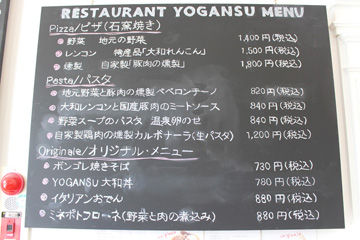 RESTAURANT YOGANSU MENU
Pizza/ピザ(石窯焼き)
野菜 地元の野菜 1,400円(税込)
レンコン 特産品「大和れんこん」 1,500円(税込)
燻製 自家製「豚肉の燻製」 1,800円(税込)
Pasta/パスタ
地元野菜と豚肉の燻製ペペロンチーノ 820円(税込)
大和レンコンと国産豚肉のミートソース 840円(税込)
野菜スープのパスタ 温泉卵のせ 840円(税込)
自家製鶏肉の燻製カルボナーラ(生パスタ) 1,200円(税込)
Originale/オリジナル・メニュー
ボンゴレ焼きそば 730円(税込)
YOGANSU大和丼 780円(税込)
イタリアンおでん 880円(税込)
ミネポトフローネ(野菜と肉の煮込み) 880円(税込)